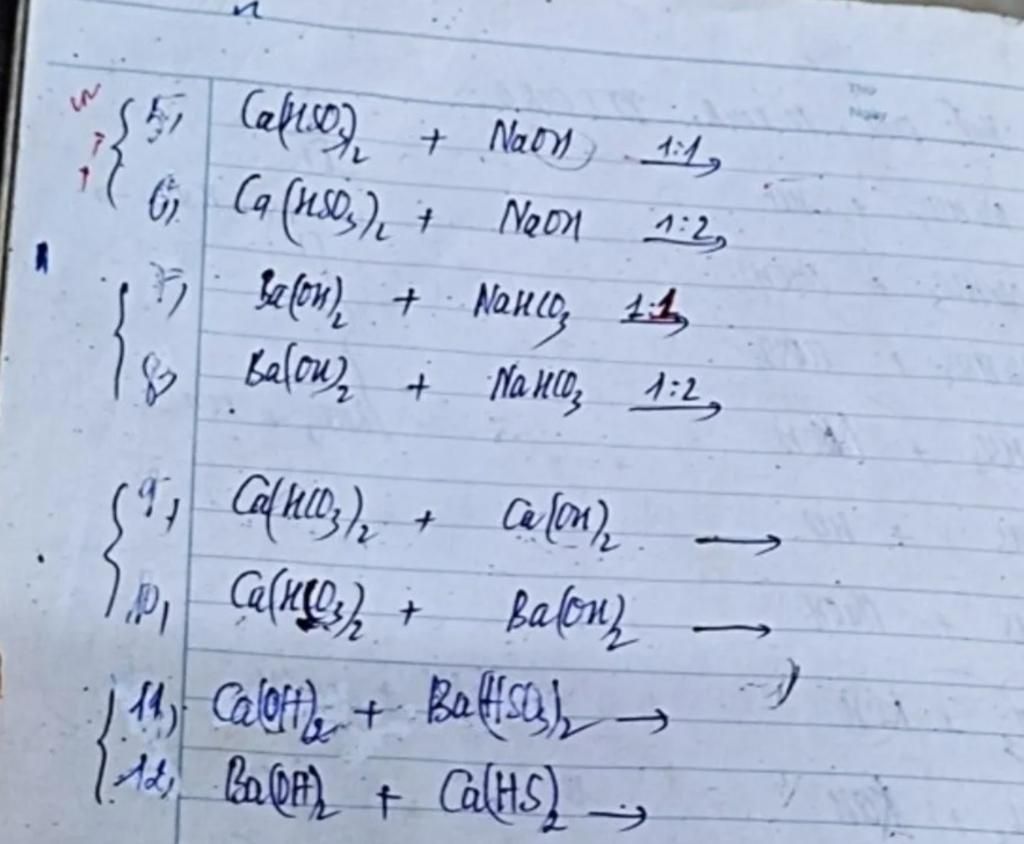 5, Ca(HSO₃)₂ + NaOH 1:1→
6, Ca(HSO₃)₂ + NaOH 1:2→
7, Ba(OH)₂ + NaHCO₃ 1:1→
8, Ba(OH)₂ + NaHCO₃ 1:2→
9, Ca(HCO₃)₂ + Ca(OH)₂ →
10, Ca(HCO₃)₂ + Ba(OH)₂ →
11, Ca(OH)₂ + Ba(HSO₃)₂ →
12, Ba(OH)₂ + Ca(HS)₂ →